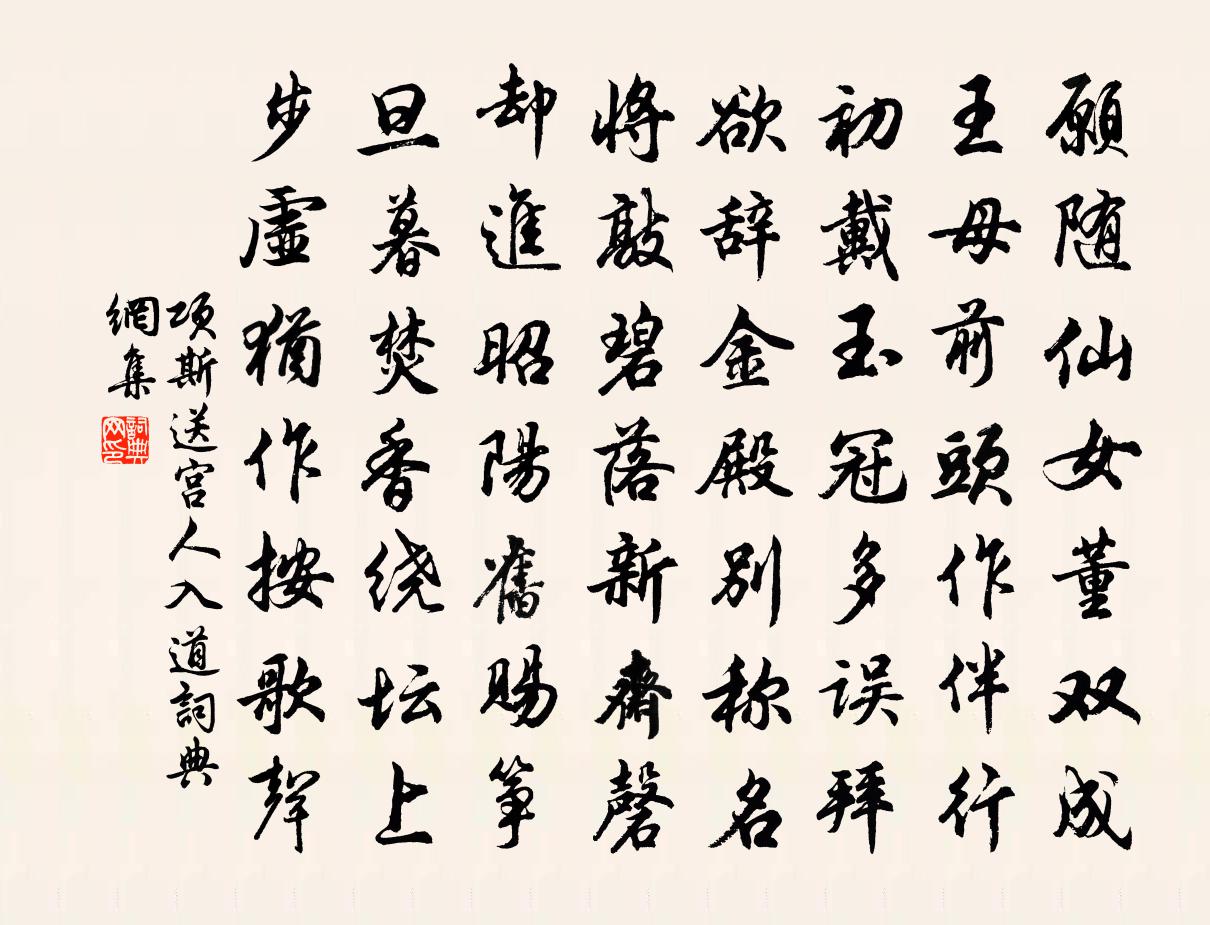 願随仙女董双成
王母前頭作伴行
初戴玉冠多误拜
欲辞金殿别称名
將敲碧落新齋磬
却進昭陽舊賜筝
旦暮焚香绕坛上
步虛猶作按歌聲
项斯送宫人入道詞典
網集
詞典
网印